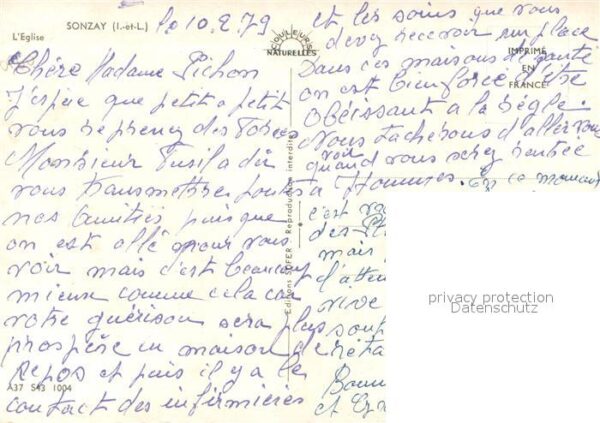 SONZAY (I.-et-L.)
L'Eglise
le 10.2.79
Chère Madame Pichon
J'espère que petit a petit
vous reprenez des forces
Monsieur a dû
vous transmettre toutes
nos amitiés puisque
on est allé pour vous
voir mais c'est beaucoup
mieux comme cela car
votre guérison sera plus
prospère en maison de
Repos et puis il y a le
contact des infirmières
A37 S43 1004
COULEURS
NATURELLES
IMPRIMÉ
EN
FRANCE
Editions SOFER - Reproduction interdite
et les soins que vous
devez recevoir sur place
Dans ces maisons de santé
on est bien forcé d'être
obéissant a la règle.
Nous tacherons d'aller vous
voir
quand vous serez rentrée
a Hommes. En ce moment
c'est
des
mais
d'atten
vive
soup
réta
Bonn
et
privacy protection
Datenschutz